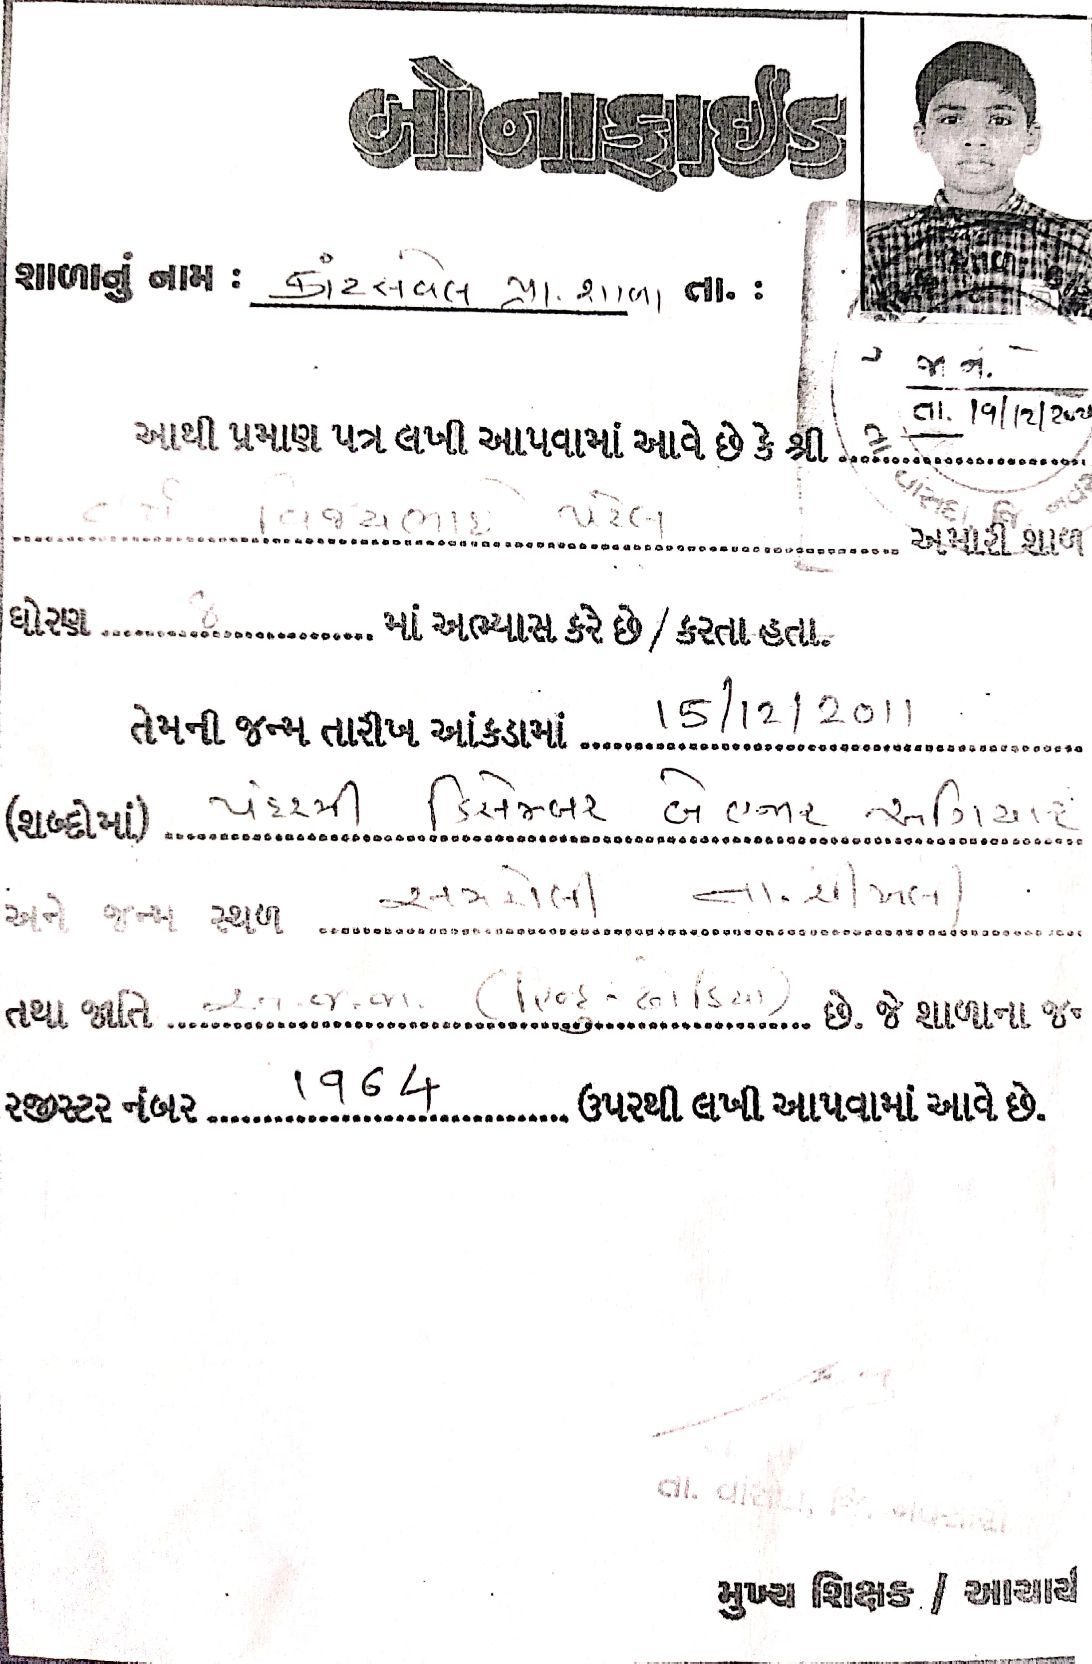 બોનાફાઇડ
શાળાનું નામ : કાંટસવેલ પ્રા. શાળા તા. :
જા નં.
તા. 19/12/20
આથી પ્રમાણ પત્ર લખી આપવામાં આવે છે કે શ્રી
વિજયભાઇ પટેલ અમારી શાળ
વાંસદા જિ
ધોરણ 8 માં અભ્યાસ કરે છે / કરતા હતા.
તેમની જન્મ તારીખ આંકડામાં 15/12/2011
(શબ્દોમાં) પંદરમી ડિસેમ્બર બે હજાર અગિયાર
અને જન્મ સ્થળ તા. ચીખલી
તથા જાતિ અ.જ.જા. (હિન્દુ - ધોડિયા) છે. જે શાળાના જન
રજીસ્ટર નંબર 1964 ઉપરથી લખી આપવામાં આવે છે.
તા. વાંસદા, જિ. નવસારી
મુખ્ય શિક્ષક / આચાર્ય